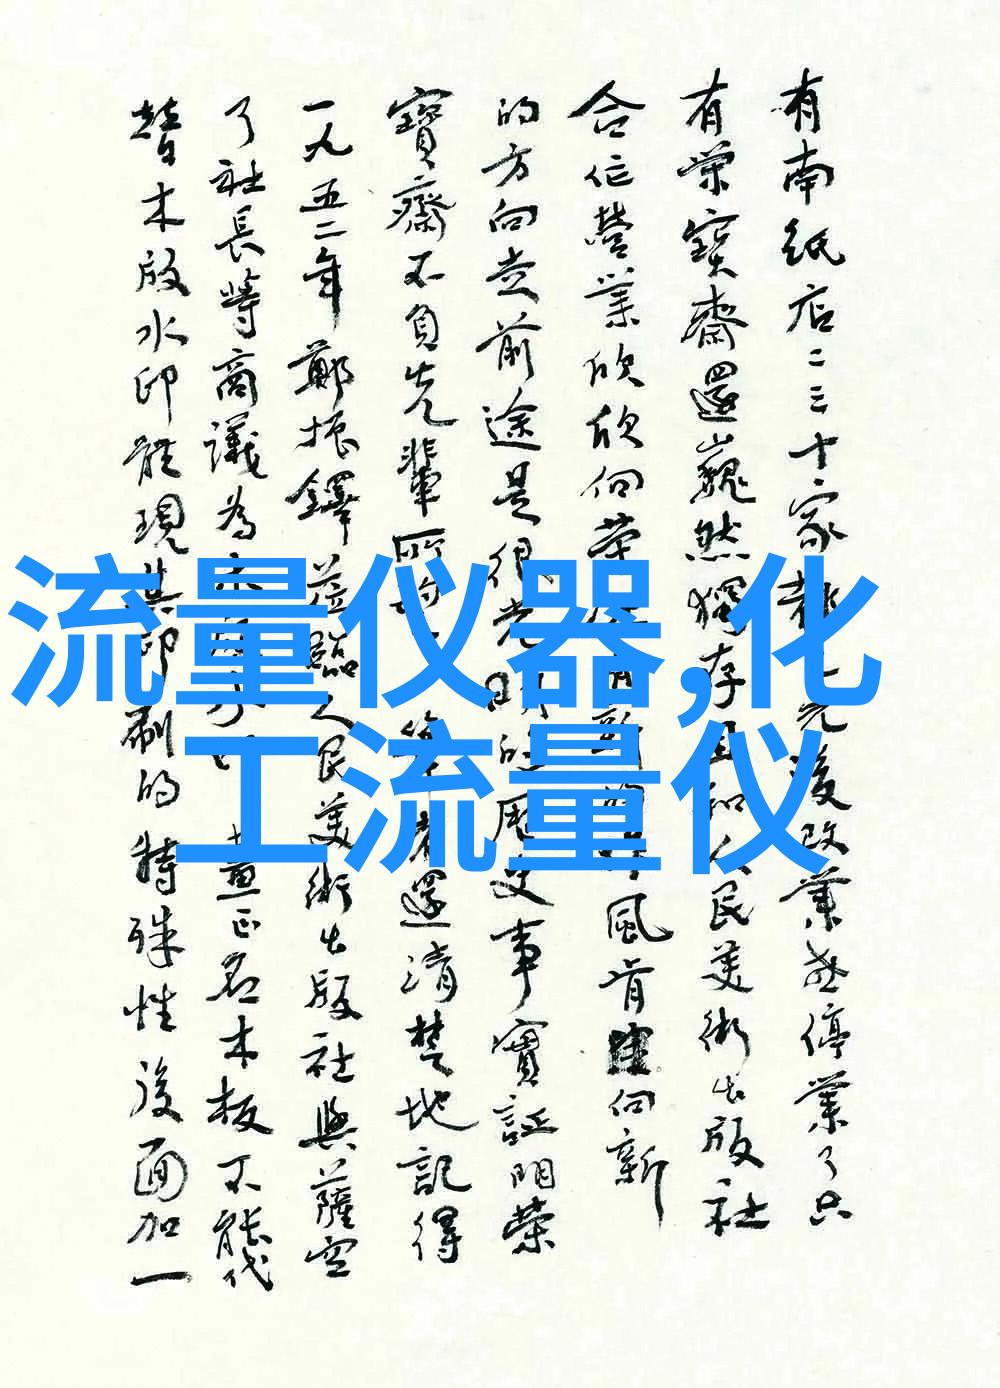 有南紙店二三十家都先後改業或停業了只
有榮寶齋還巍然獨存且和人民美術出版社
合作營業欣欣向榮
風肯
向新
的方向走前途是很光明的歷史事實証明榮
寶齋不負先輩所
還清楚地記得
一九五二年鄭振鐸蒞臨人民美術出版社與薩空
了社長等商議為木
畫正名木板不能代
替木版水印體現其印刷的特殊性後面加一
流量仪器,化
工流量仪